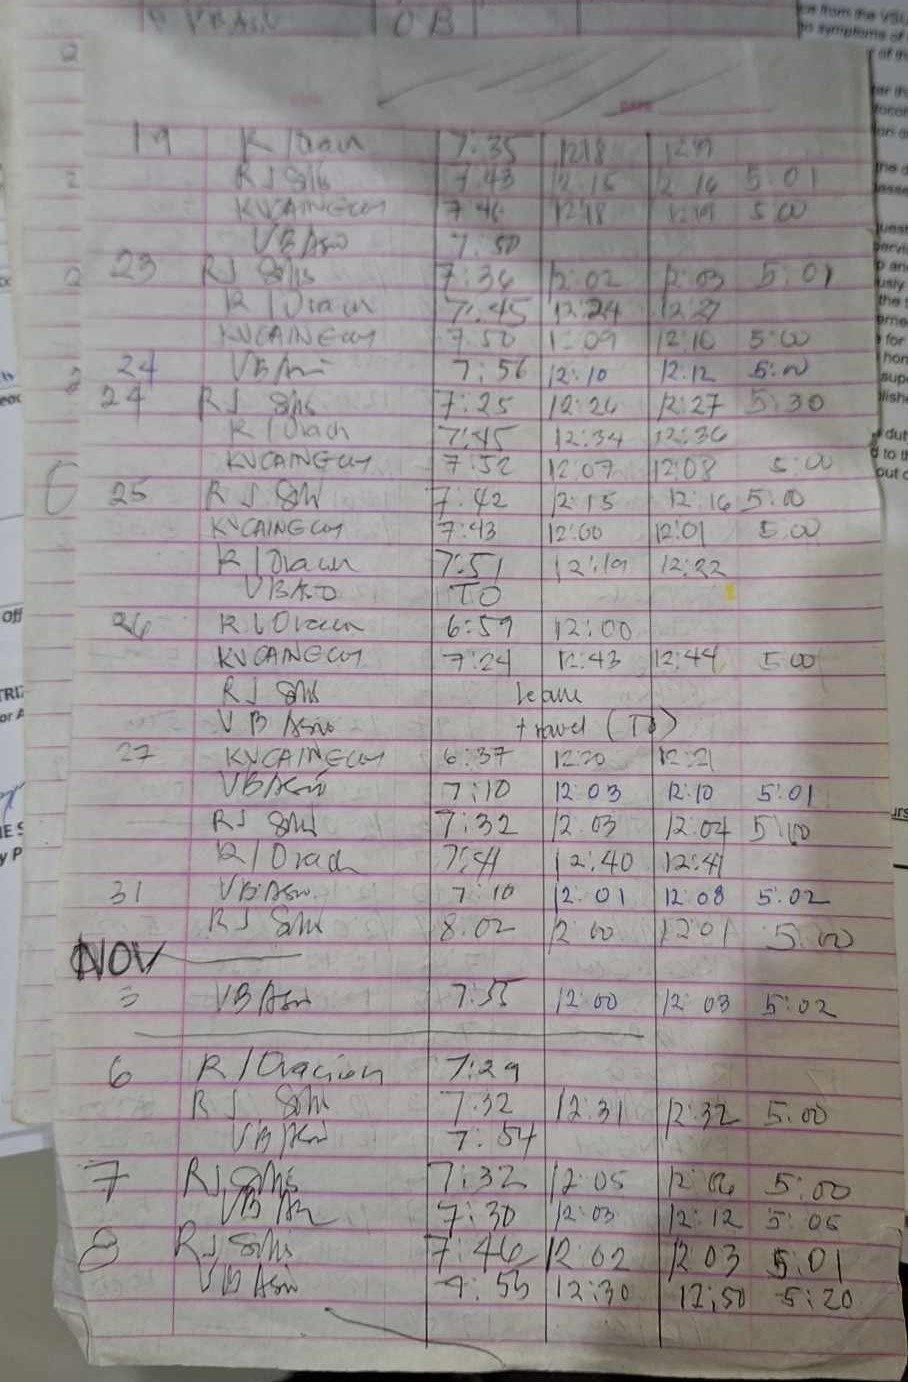 VBAsio OB
DATE
19 R I Oracn 7:35 12:18 12:19
RJ Solis 7:43 12:15 12:16 5:01
KVCAINGCOY 7:46 12:18 12:19 5:00
VBAsio 7:50
23 RJ Solis 7:36 12:02 12:03 5:01
R I Oracn 7:45 12:24 12:27
KVCAINGCOY 7:50 1:09 12:10 5:00
24 VBAsio 7:56 12:10 12:12 5:00
24 RJ Solis 7:25 12:26 12:27 5:30
R I Orach 7:45 12:34 12:36
KVCAINGCOY 7:52 12:07 12:08 5:00
25 RJ Solis 7:42 12:15 12:16 5:00
KVCAINGCOY 7:43 12:00 12:01 5:00
R I Oracn 7:51 12:19 12:22
VBASIO TO
26 R I Oracn 6:59 12:00
KVCAINGCOY 7:24 12:43 12:44 5:00
RJ Solis leave
VBAsio travel (TO)
27 KVCAINGCOY 6:37 12:20 12:21
VBAsio 7:10 12:03 12:10 5:01
RJ Solis 7:32 12:03 12:04 5:00
R I Orach 7:41 12:40 12:41
31 VBAsio 7:10 12:01 12:08 5:02
RJ Solis 8:02 12:00 12:01 5:00
NOV
3 VBAsio 7:55 12:00 12:03 5:02
6 R I Oracion 7:29
RJ Solis 7:32 12:31 12:32 5:00
VBAsio 7:54
7 RJ Solis 7:32 12:05 12:06 5:00
VBAsio 7:30 12:03 12:12 5:06
8 RJ Solis 7:46 12:02 12:03 5:01
VBAsio 7:55 12:30 12:50 5:20